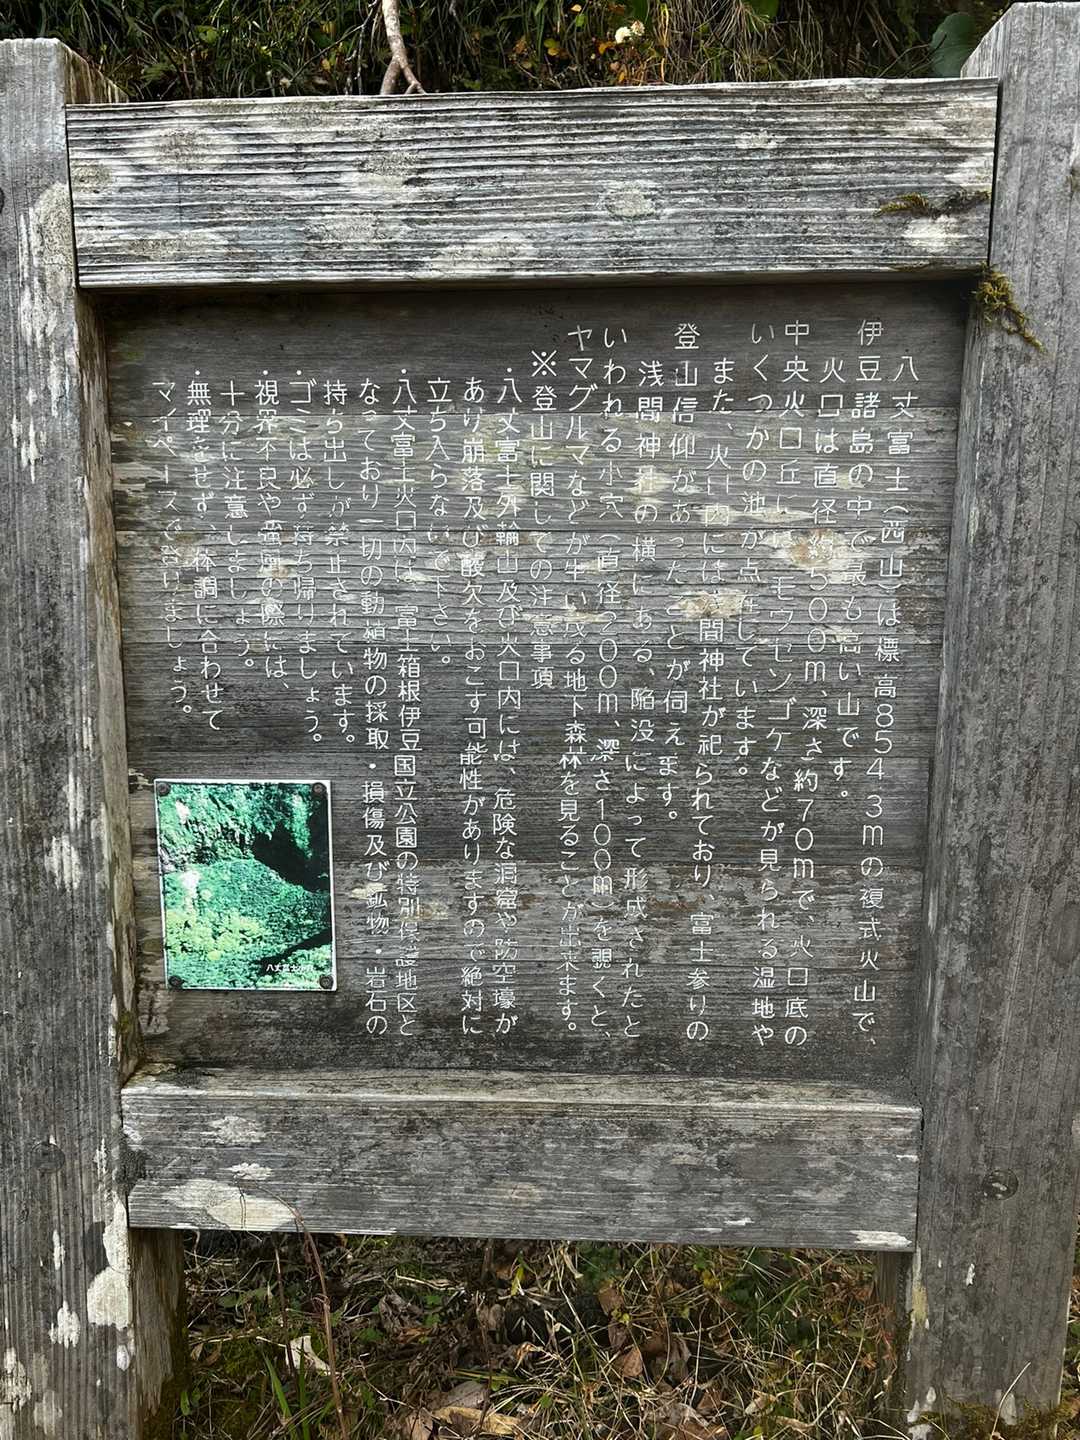 八丈富士（西山）は標高854.3mの複式火山で、
伊豆諸島の中で最も高い山です。
火口は直径約500m、深さ約70mで、火口底の
中央火口丘には、モウセンゴケなどが見られる湿地や
いくつかの池が点在しています。
また、火口内には浅間神社が祀られており、富士参りの
登山信仰があったことが伺えます。
浅間神社の横にある、陥没によって形成されたと
いわれる小穴（直径200m、深さ100m）を覗くと、
ヤマグルマなどが生い茂る地下森林を見ることが出来ます。
※登山に関しての注意事項
・八丈富士外輪山及び火口内には、危険な洞窟や防空壕が
あり崩落及び酸欠をおこす可能性がありますので絶対に
立ち入らないで下さい。
・八丈富士火口内は、富士箱根伊豆国立公園の特別保護地区と
なっており一切の動植物の採取・損傷及び鉱物・岩石の
持ち出しが禁止されています。
・ゴミは必ず持ち帰りましょう。
・視界不良や強風の際には、
十分に注意しましょう。
・無理をせず、体調に合わせて
マイペースで登りましょう。
八丈富士